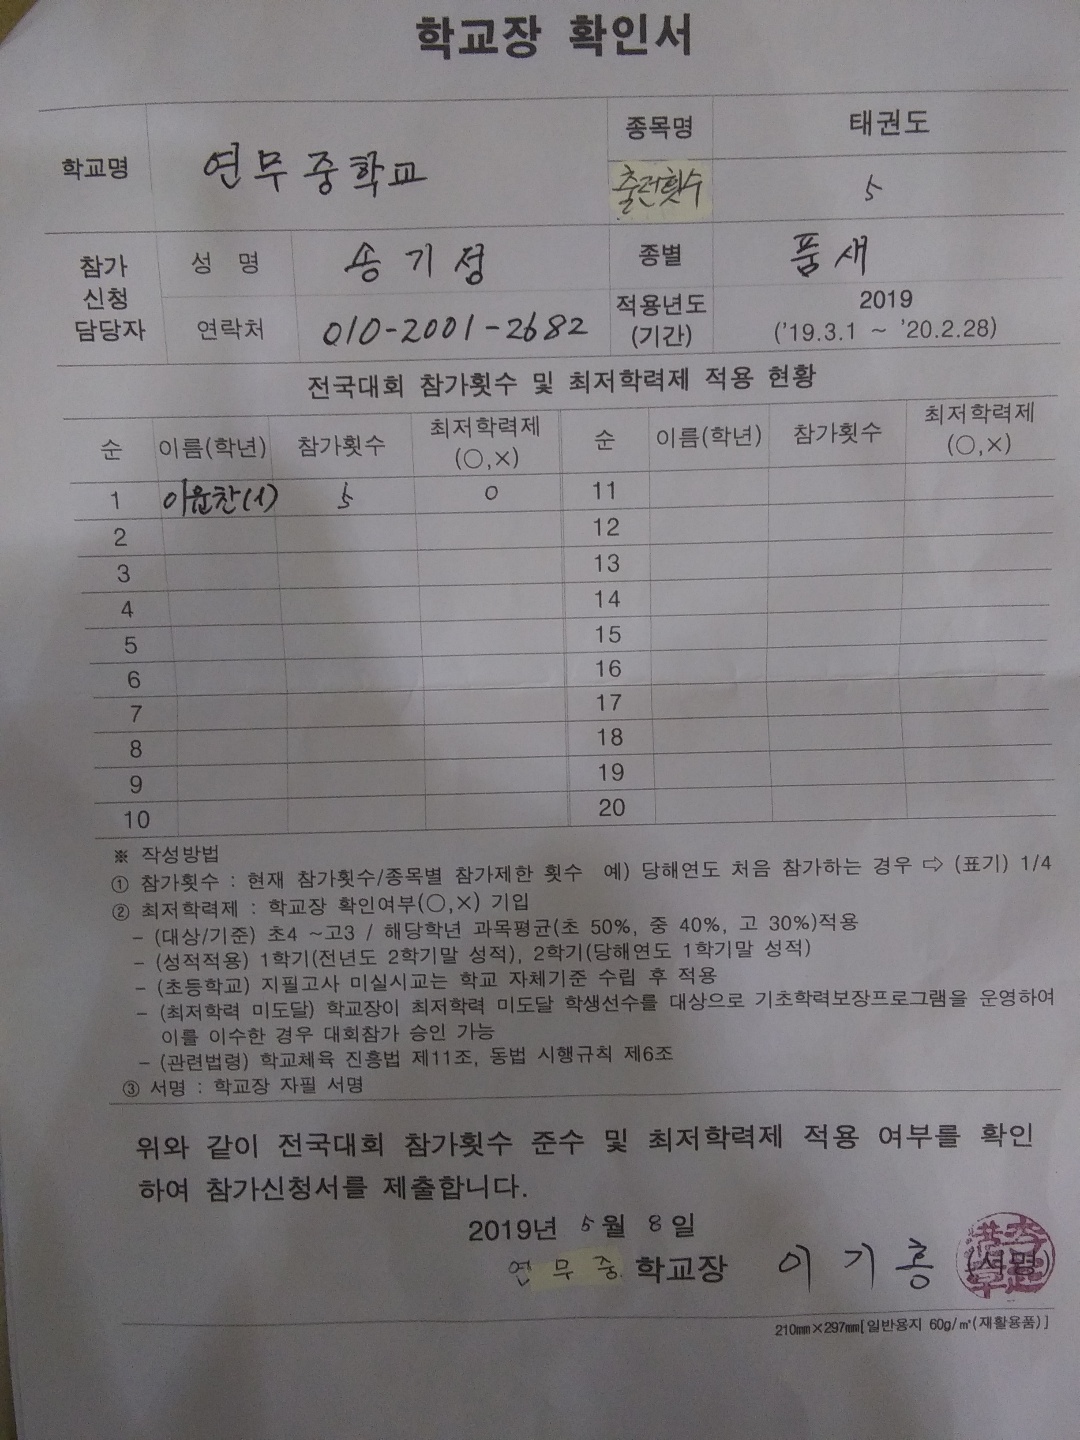 학교장 확인서
학교명 연무중학교 종목명 태권도
출전횟수 5
참가 신청 담당자 성 명 송기정 종별 품새
연락처 010-2001-2682 적용년도 (기간) 2019 ('19.3.1 ~ '20.2.28)
전국대회 참가횟수 및 최저학력제 적용 현황
순 이름(학년) 참가횟수 최저학력제 (○,×) 순 이름(학년) 참가횟수 최저학력제 (○,×)
1 이윤찬(1) 5 ○ 11
2 12
3 13
4 14
5 15
6 16
7 17
8 18
9 19
10 20
※ 작성방법
① 참가횟수 : 현재 참가횟수/종목별 참가제한 횟수 예) 당해연도 처음 참가하는 경우 ⇨ (표기) 1/4
② 최저학력제 : 학교장 확인여부(○,×) 기입
– (대상/기준) 초4 ~고3 / 해당학년 과목평균(초 50%, 중 40%, 고 30%)적용
– (성적적용) 1학기(전년도 2학기말 성적), 2학기(당해연도 1학기말 성적)
– (초등학교) 지필고사 미실시교는 학교 자체기준 수립 후 적용
– (최저학력 미도달) 학교장이 최저학력 미도달 학생선수를 대상으로 기초학력보장프로그램을 운영하여
이를 이수한 경우 대회참가 승인 가능
– (관련법령) 학교체육 진흥법 제11조, 동법 시행규칙 제6조
③ 서명 : 학교장 자필 서명
위와 같이 전국대회 참가횟수 준수 및 최저학력제 적용 여부를 확인
하여 참가신청서를 제출합니다.
2019년 5월 8일
연무중 학교장 이기홍 (서명)
210㎜×297㎜[일반용지 60g/㎡(재활용품)]